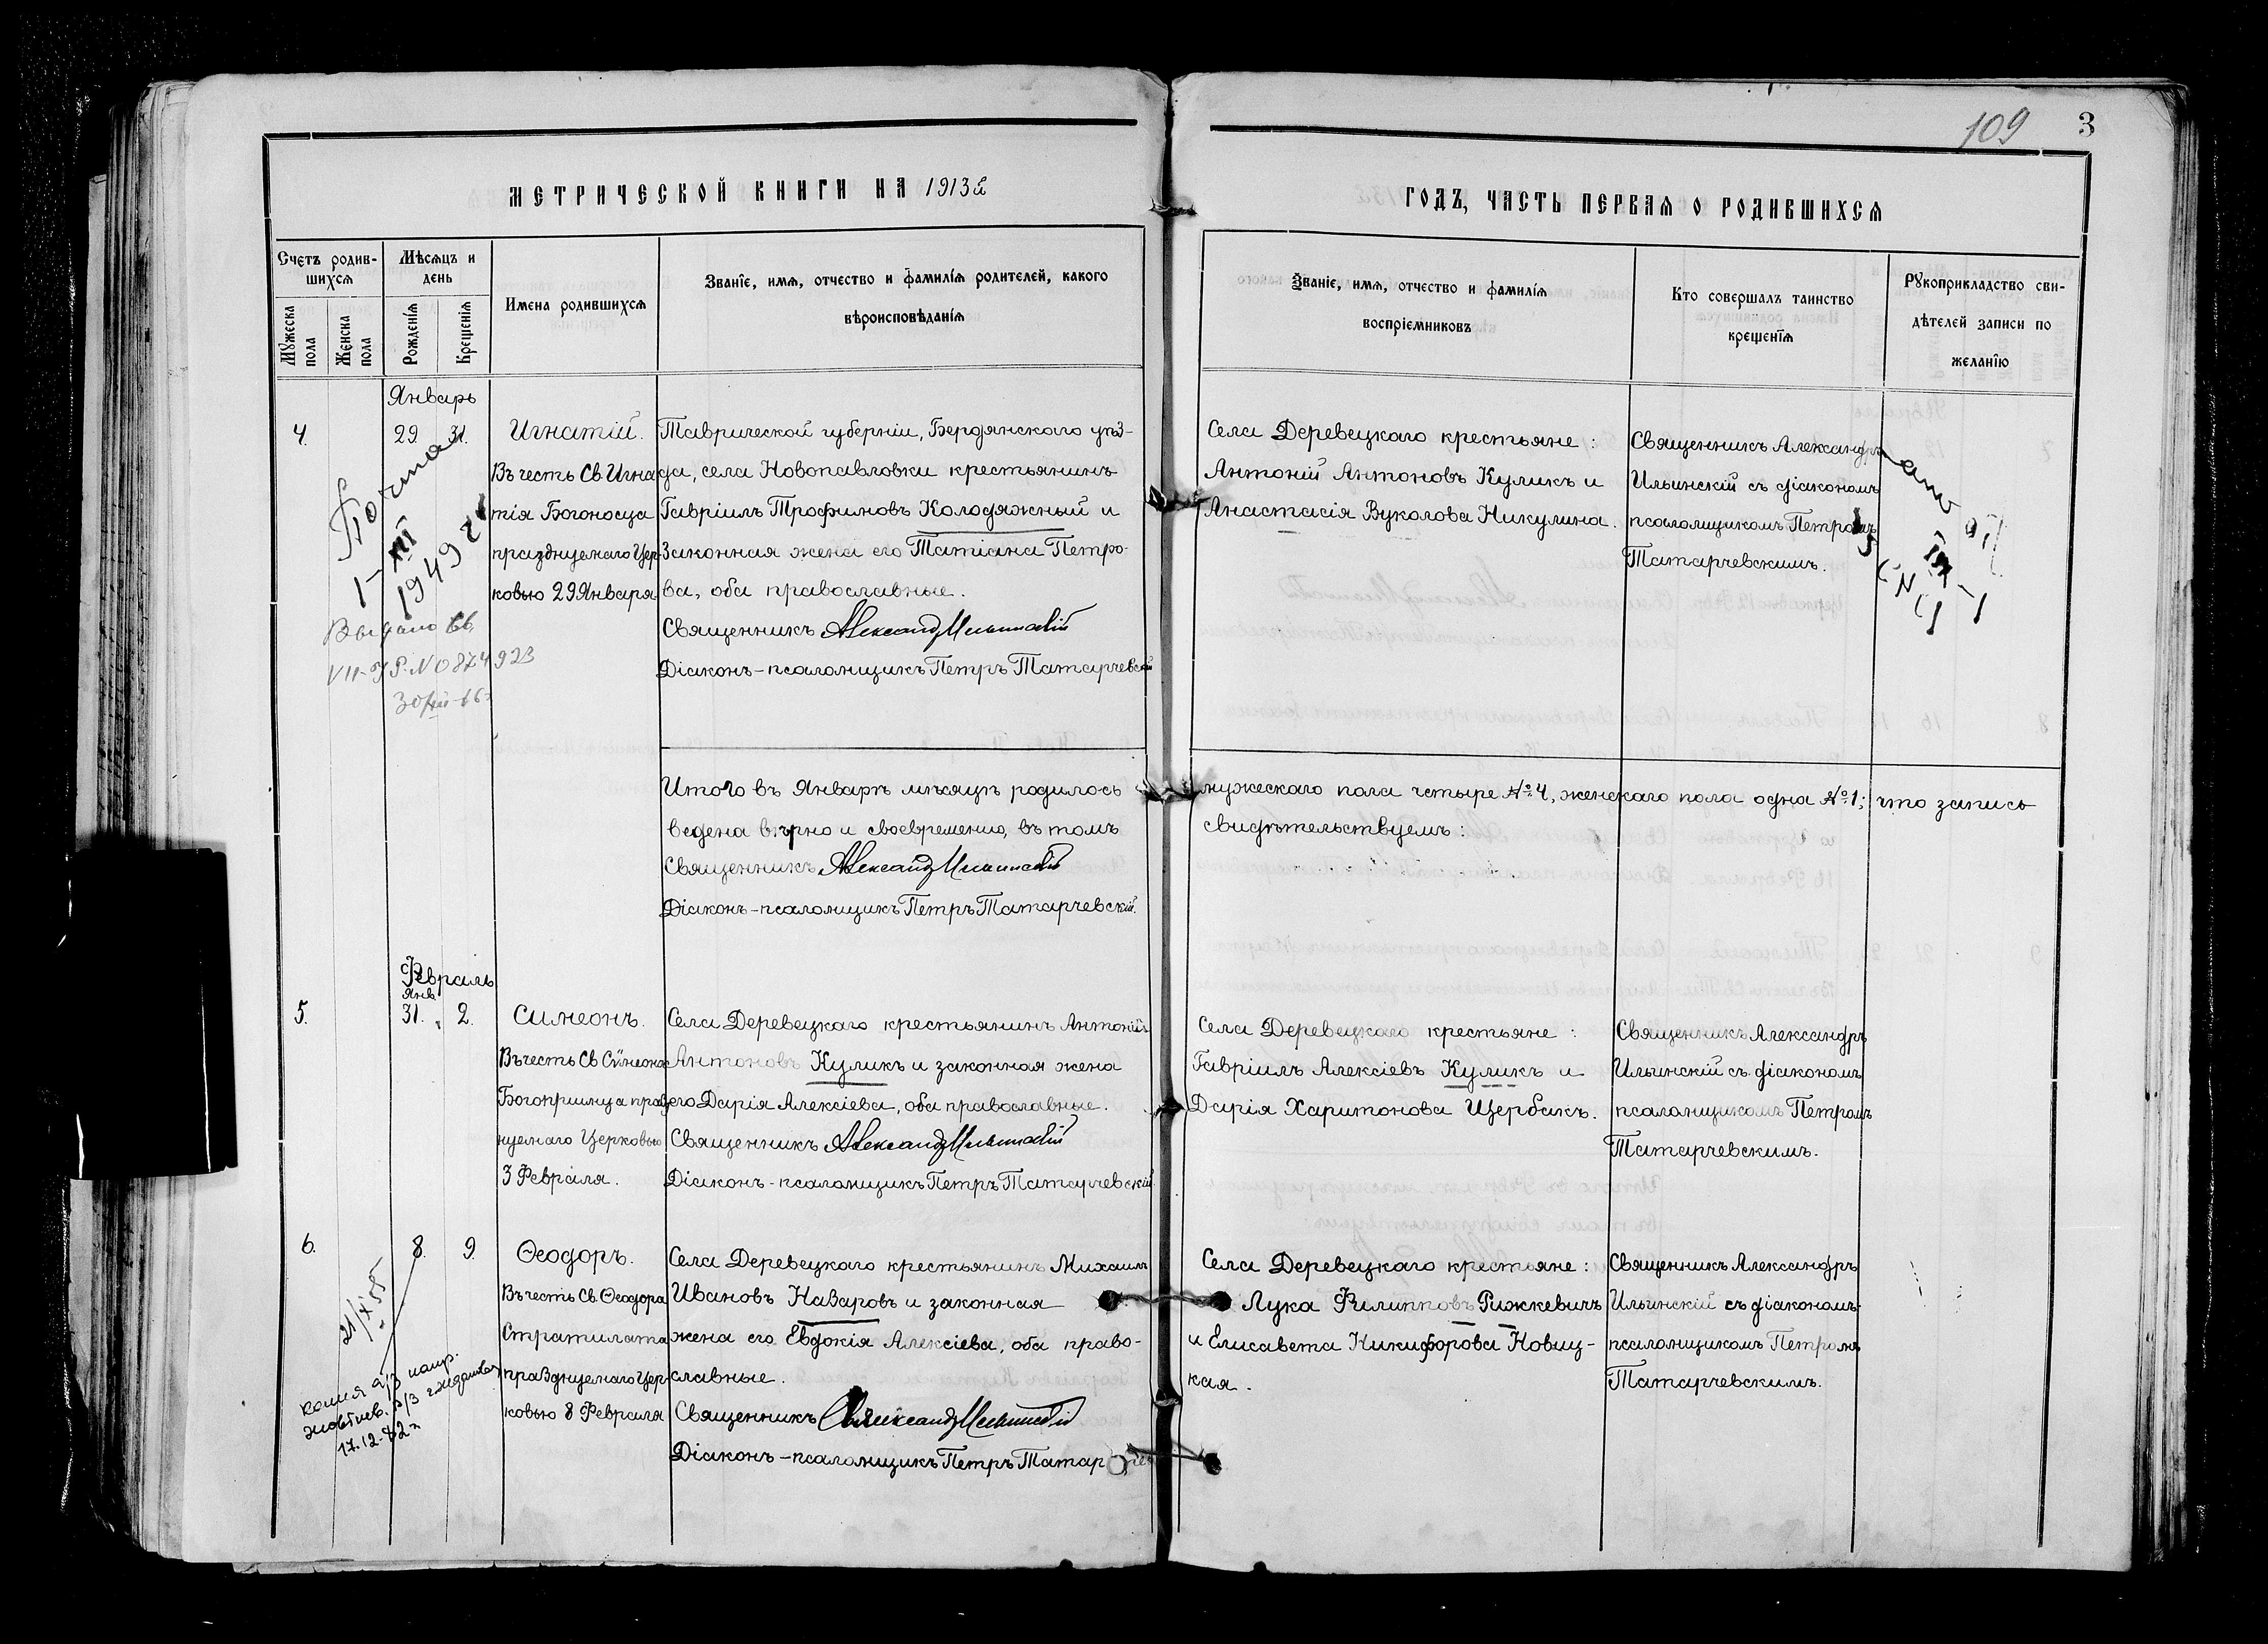 109 3
МЕТРИЧЕСКОЙ КНИГИ НА 1913й
ГОДЪ, ЧАСТЬ ПЕРВАЯ О РОДИВШИХСЯ
Счетъ родив-
шихся
Мужеска
пола
Женска
пола
Мѣсяцъ и
день
Рожденія
Крещенія
Имена родившихся
Званіе, имя, отчество и фамилія родителей, какого
вѣроисповѣданія
Званіе, имя, отчество и фамилія
воспріемниковъ
Кто совершалъ таинство
крещенія
Рукоприкладство сви-
дѣтелей записи по
желанію
Январь
4. 29 31.
Игнатій.
Въ честь Св. Игна
тія Богоносца
празднуемаго Цер-
ковью 29 Января.
Таврической губерніи, Бердянскаго уѣз-
да, села Новопавловки крестьянинъ
Гавріилъ Трофимовъ Колодяжный и
законная жена его Татіана Петро-
ва, оба православные.
Священникъ Александръ Ильинскій
Діаконъ-псаломщикъ Петръ Татарчевскій
Села Деревецкаго крестьяне:
Антоній Антоновъ Куликъ и
Анастасія Вуколова Никулина.
Священникъ Александръ
Ильинскій съ діакономъ
псаломщикомъ Петромъ
Татарчевскимъ.
1-III
1949 г
Выдано
VII-ЧР № 0874923
Итого въ Январѣ мѣсяцѣ родилось мужескаго пола четыре №4, женскаго пола одна №1; что запись
ведена вѣрно и своевременно, въ томъ свидѣтельствуемъ:
Священникъ Александръ Ильинскій
Діаконъ-псаломщикъ Петръ Татарчевскій.
Февраль
Янв.
5. 31. 2.
Симеонъ.
Въ честь Св. Симеона
Богопріимца празд
нуемаго Церковью
3 Февраля.
Села Деревецкаго крестьянинъ Антоній
Антоновъ Куликъ и законная жена
его Дарія Алексіева, оба православные.
Священникъ Александръ Ильинскій
Діаконъ-псаломщикъ Петръ Татарчевскій.
Села Деревецкаго крестьяне:
Гавріилъ Алексіевъ Куликъ и
Дарія Харитонова Щербакъ.
Священникъ Александръ
Ильинскій съ діакономъ
псаломщикомъ Петромъ
Татарчевскимъ.
6. 8. 9.
Ѳеодоръ.
Въ честь Св. Ѳеодора
Стратилата
празднуемаго Цер-
ковью 8 Февраля
Села Деревецкаго крестьянинъ Михаилъ
Ивановъ Назаровъ и законная
жена его Евдокія Алексіева, оба право-
славные.
Священникъ Александръ Ильинскій
Діаконъ-псаломщикъ Петръ Татар
Села Деревецкаго крестьяне:
Лука Филипповъ Рижкевичъ
и Елисавета Никифорова Новиц-
кая.
Священникъ Александръ
Ильинскій съ діакономъ
псаломщикомъ Петромъ
Татарчевскимъ.
21/X 55
копия а/з напр.
17.12-82 г